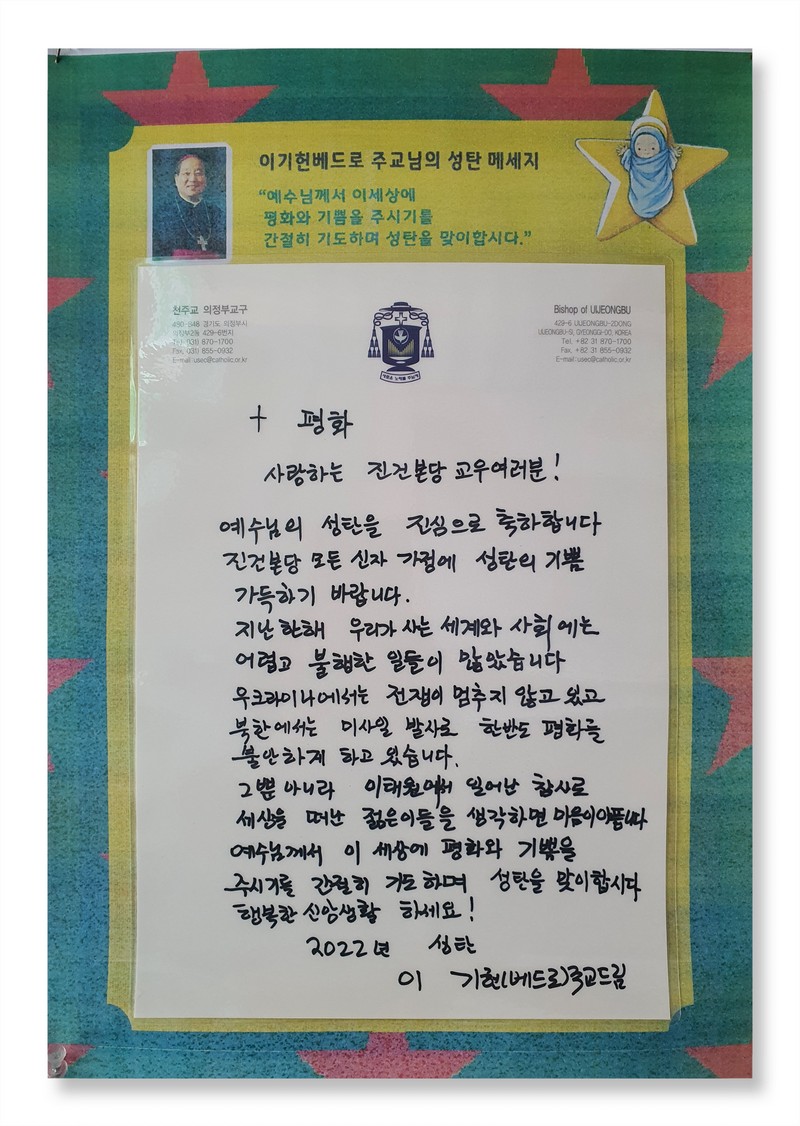 이기헌베드로 주교님의 성탄 메세지
“예수님께서 이세상에
평화와 기쁨을 주시기를
간절히 기도하며 성탄을 맞이합시다.”
천주교 의정부교구
480-848 경기도 의정부시
의정부2동 429-6번지
Tel. 031) 870-1700
Fax. 031) 855-0932
E-mail : useo@catholic.or.kr
Bishop of UIJEONGBU
429-6 UIJEONGBU-2DONG
UIJEONGBU-SI, GYEONGGI-DO, KOREA
Tel. +82 31 870-1700
Fax. +82 31 855-0932
E-mail : useo@catholic.or.kr
† 평화
사랑하는 진건본당 교우여러분!
예수님의 성탄을 진심으로 축하합니다
진건본당 모든 신자 가정에 성탄의 기쁨
가득하기 바랍니다.
지난 한해 우리가 사는 세계와 사회에는
어렵고 불행한 일들이 많았습니다
우크라이나에서는 전쟁이 멈추지 않고 있고
북한에서는 미사일 발사로 한반도 평화를
불안하게 하고 있습니다.
그뿐 아니라 이태원에서 일어난 참사로
세상을 떠난 젊은이들을 생각하면 마음이 아픕니다
예수님께서 이 세상에 평화와 기쁨을
주시기를 간절히 기도하며 성탄을 맞이합시다
행복한 신앙생활 하세요!
2022년 성탄
이 기헌(베드로)주교드림